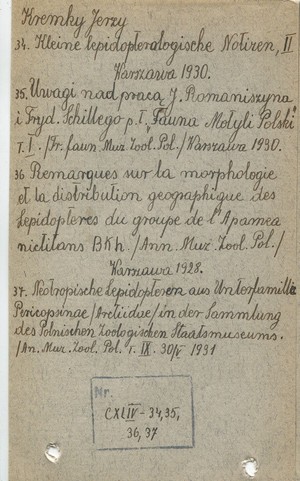 Kremky Jerzy
34. Kleine lepidopteralogische Notiren, II
Warszawa 1930.
35. Uwagi nad pracą J. Romaniszyna
i Fryd. Schillego p.t. „Fauna Motyli Polski"
T. I. /Pr. faun. Muz. Zool. Pol./ Warszawa 1930.
36 Remarques sur la morphologie
et la distribution geographique des
Lepidopteres du groupe de l'Apamea
nictitans BKh. /Ann. Muz. Zool. Pol./
Warszawa 1928.
37. Neotropische Lepidopteren aus Unterfamillia
Pericopsinae /Arctiidae/ in der Sammlung
des Polnischen Zoologischen Staatsmuseums.
/An. Muz. Zool. Pol. T. IX. 30/V 1931
Nr.
CXLIV - 34, 35,
36, 37